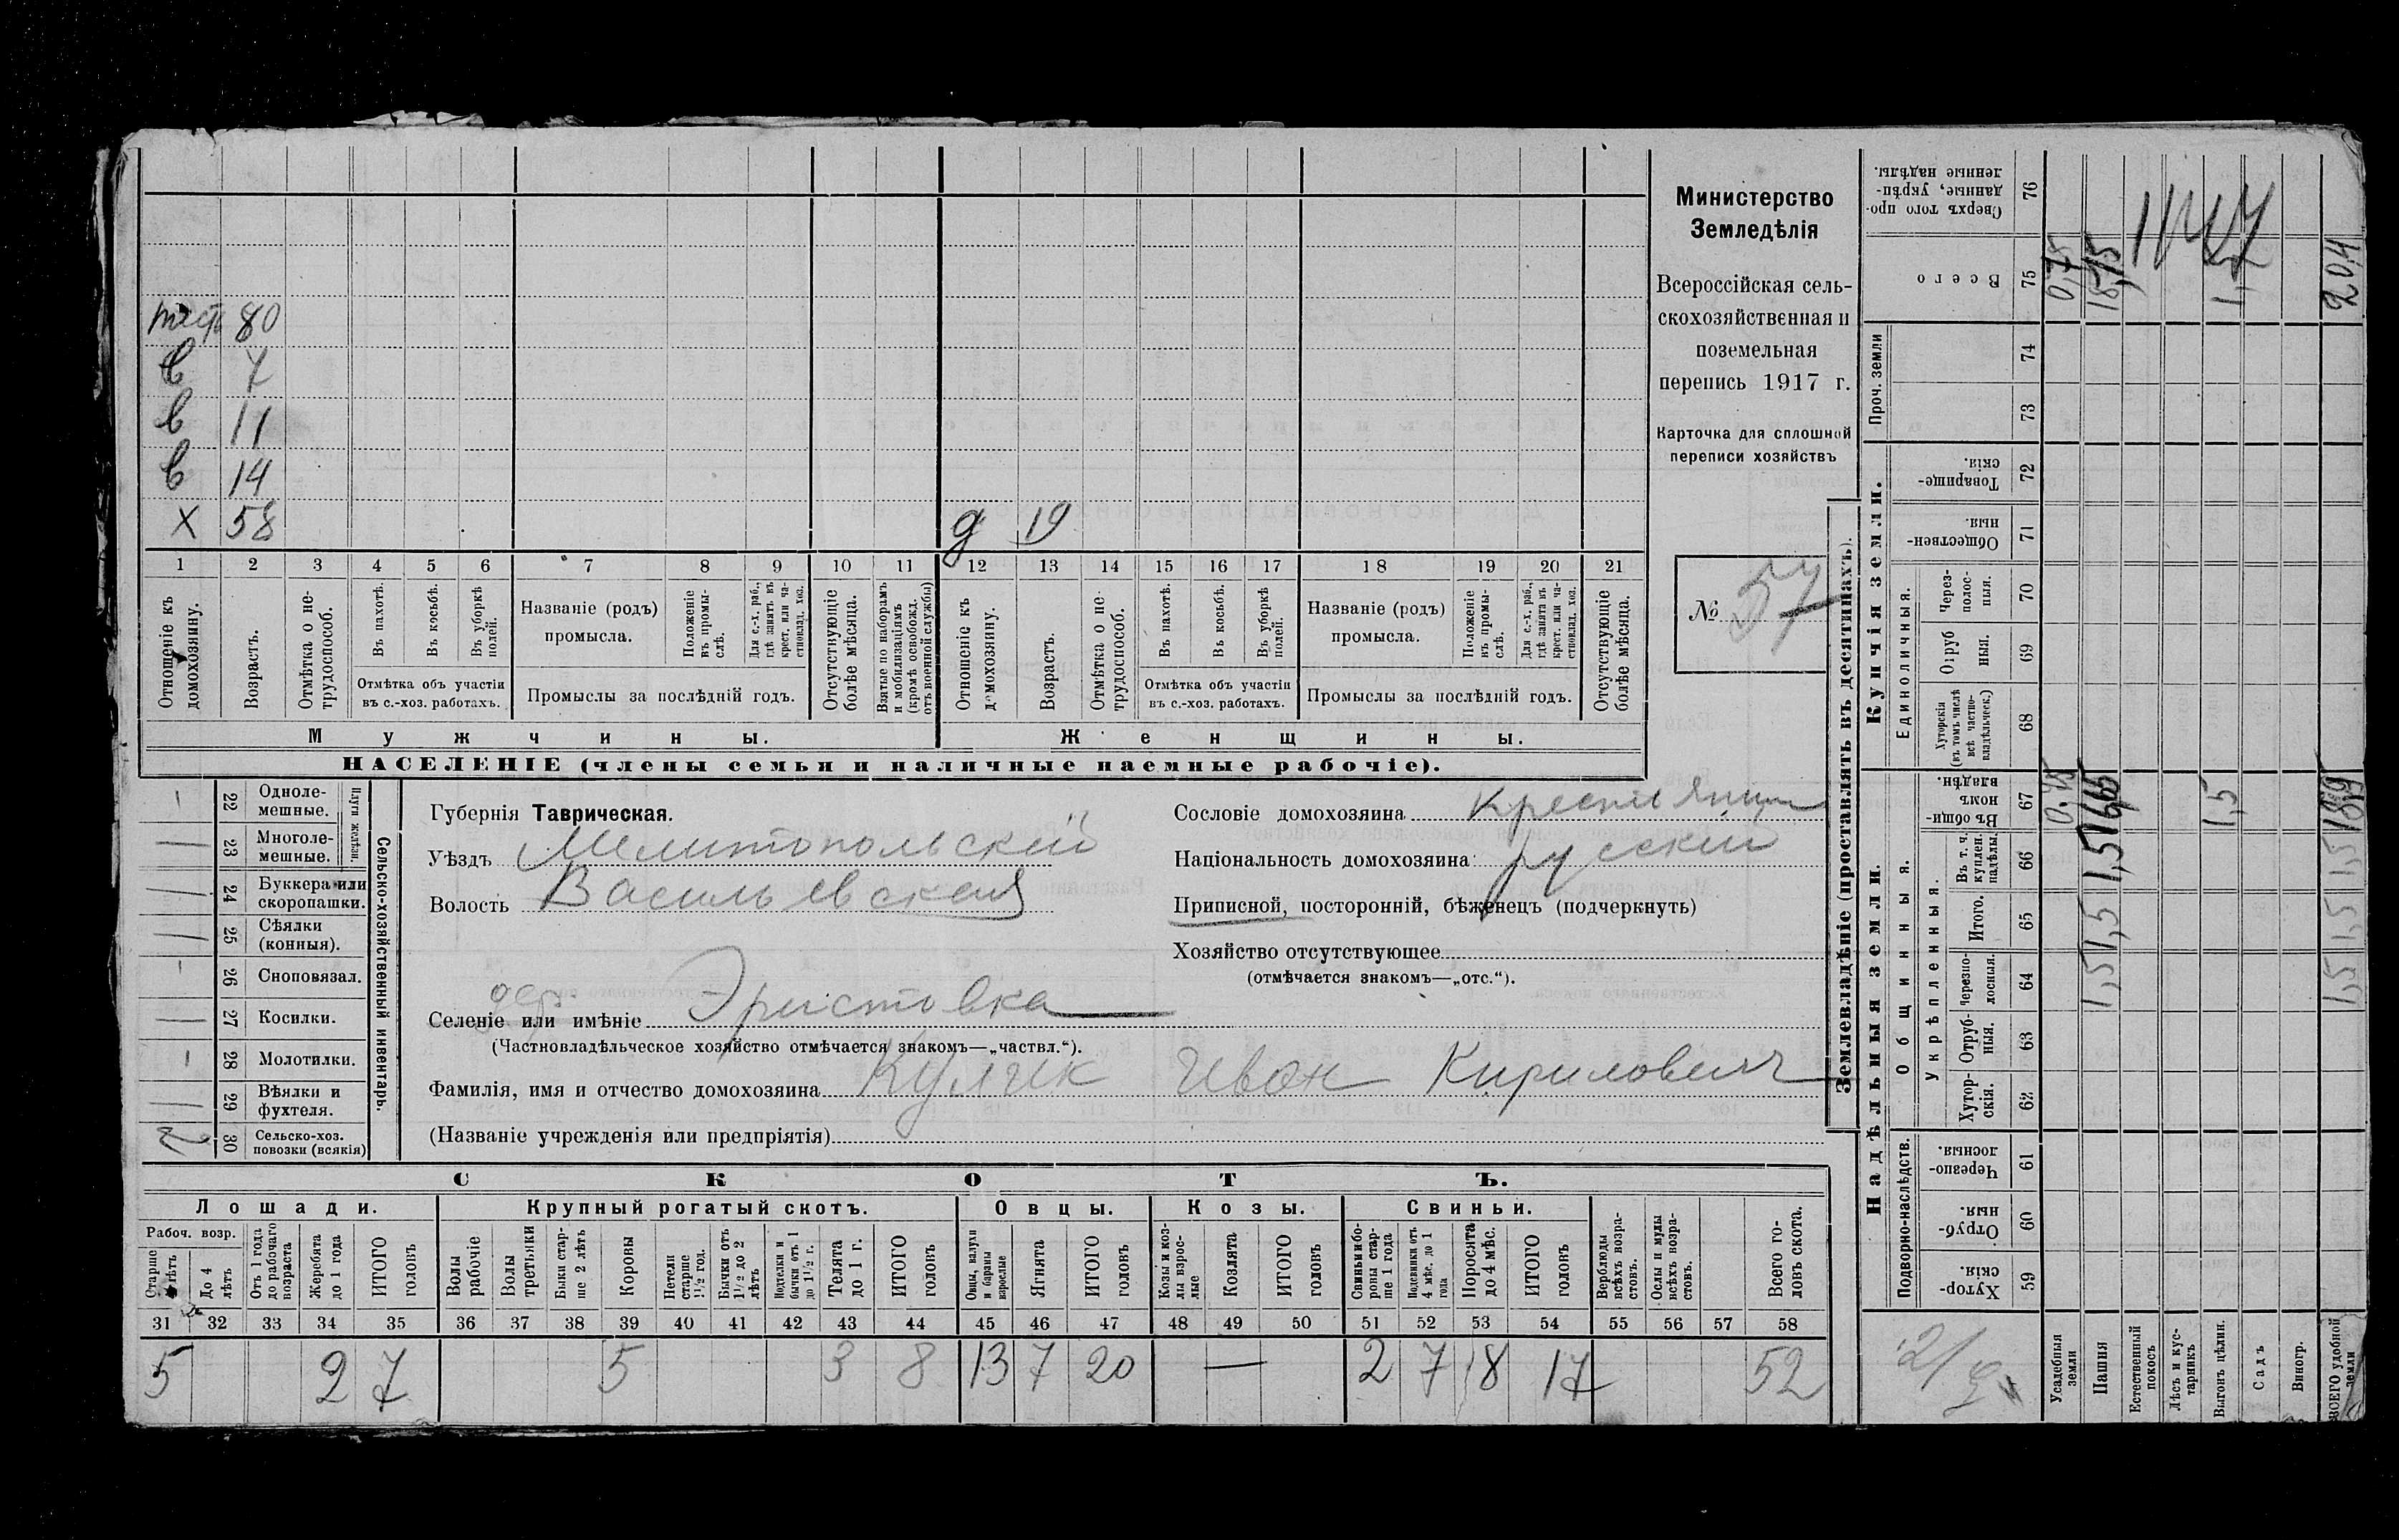 тесть 80
в 7
в 11
в 14
х 58
д 19
1 2 3 4 5 6 7 8 9 10 11 12 13 14 15 16 17 18 19 20 21
Отношеніе къ домохозяину.
Возрастъ.
Отмѣтка о нетрудоспособ.
Въ пахотѣ.
Въ косьбѣ.
Въ уборкѣ полей.
Отмѣтка объ участіи
въ с.-хоз. работахъ.
Названіе (родъ)
промысла.
Положеніе въ промыслѣ.
Для с.-х. раб., гдѣ занятъ въ крест. или частновлад. хоз.
Промыслы за послѣдній годъ.
Отсутствующіе болѣе мѣсяца.
Взятые по наборамъ и мобилизаціямъ (кромѣ освобожд. отъ военной службы)
Отношеніе къ домохозяину.
Возрастъ.
Отмѣтка о нетрудоспособ.
Въ пахотѣ.
Въ косьбѣ.
Въ уборкѣ полей.
Отмѣтка объ участіи
въ с.-хоз. работахъ.
Названіе (родъ)
промысла.
Положеніе въ промыслѣ.
Для с.-х. раб., гдѣ занята въ крест. или частновлад. хоз.
Промыслы за послѣдній годъ.
Отсутствующіе болѣе мѣсяца.
Мужчины.
Женщины.
НАСЕЛЕНІЕ (члены семьи и наличные наемные рабочіе).
Министерство
Земледѣлія
Всероссійская сель-
скохозяйственная и
поземельная
перепись 1917 г.
Карточка для сплошной
переписи хозяйствъ
№ 57
22 Одноле-
мешные.
23 Многоле-
мешные.
Плуги желѣзн.
24 Буккера или
скоропашки.
25 Сѣялки
(конныя).
26 Сноповязал.
27 Косилки.
28 Молотилки.
29 Вѣялки и
фухтеля.
30 Сельско-хоз.
повозки (всякія)
2
Сельско-хозяйственный инвентарь.
Губернія Таврическая.
Уѣздъ Мелитопольскій
Волость Васильевская
дер.
Селеніе или имѣніе Эристовка
(Частновладѣльческое хозяйство отмѣчается знакомъ—„частвл.“).
Фамилія, имя и отчество домохозяина Кулик Иван Кирилович
(Названіе учрежденія или предпріятія)
Сословіе домохозяина крестьянин
Національность домохозяина русскій
Приписной, посторонній, бѣженецъ (подчеркнуть)
Хозяйство отсутствующее
(отмѣчается знакомъ—„отс.“).
СКОТЪ.
Лошади. Крупный рогатый скотъ. Овцы. Козы. Свиньи.
Рабоч. возр.
Старше 4 лѣтъ
До 4 лѣтъ
Отъ 1 года до рабочаго возраста
Жеребята до 1 года
ИТОГО головъ
Волы рабочіе
Волы третьяки
Быки старше 2 лѣтъ
Коровы
Нетели старше 1½ год.
Бычки отъ 1½ до 2 лѣтъ
Подтелки и бычки отъ 1 до 1½ г.
Телята до 1 г.
ИТОГО головъ
Овцы, валухи и бараны взрослые
Ягнята
ИТОГО головъ
Козы и козлы взрослые
Козлята
ИТОГО головъ
Свиньи и боровы старше 1 года
Подсвинки отъ 4 мѣс. до 1 года
Поросята до 4 мѣс.
ИТОГО головъ
Верблюды всѣхъ возрастовъ.
Ослы и мулы всѣхъ возрастовъ.
Всего головъ скота.
31 32 33 34 35 36 37 38 39 40 41 42 43 44 45 46 47 48 49 50 51 52 53 54 55 56 57 58
5 2 7 5 3 8 13 7 20 — 2 7 8 17 52
Землевладѣніе (проставлять въ десятинахъ).
Надѣльныя земли.
Купчія земли.
Проч. земли
Подворно-наслѣдств.
Общинныя.
Укрѣпленныя.
Единоличныя.
Сверхъ того проданные, укрѣпленные надѣлы. 76
Всего 75
74
73
Товарищескія. 72
Общественныя. 71
Черезполосныя. 70
Отрубныя. 69
Хуторскія (въ томъ числѣ всѣ частновладѣльческ.) 68
Въ общинномъ владѣн. 67
Въ т. ч. куплен. надѣлы. 66
Итого. 65
Черезполосныя. 64
Отрубныя. 63
Хуторскія. 62
Черезполосныя. 61
Отрубныя. 60
Хуторскія. 59
Усадебныя земли
0,75
Пашня
1,5 1,5 1,5
Естественный покосъ
Лѣсъ и кустарникъ
Выгонъ цѣлин.
1,5
Садъ
Виногр.
ВСЕГО удобной земли
1,5 1,5 1,5